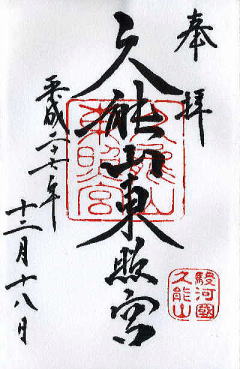 奉拝
久能山東照宮
久能山東照宮
駿河國
久能山
平成二十七年
十二月十八日